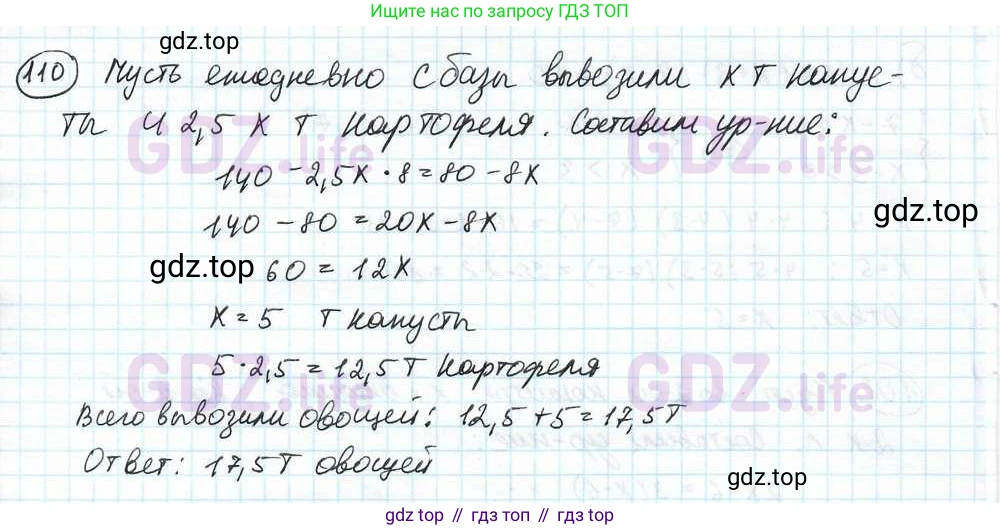 Ищите нас по запросу ГДЗ ТОП
gdz.top
110 Пусть ежедневно с базы вывозили х т капус-
ты и 2,5 х т картофеля. Составим ур-ние:
GDZ.life GDZ.life
140 - 2,5х · 8 = 80 - 8х
140 - 80 = 20х - 8х
gdz.top
gdz.top 60 = 12х
х = 5 т капусты
5 · 2,5 = 12,5 т картофеля
GDZ.life GDZ.life
Всего вывозили овощей: 12,5 + 5 = 17,5 т
Ответ: 17,5 т овощей
gdz.top
gdz.top // гдз.топ // gdz.top // гдз.топ